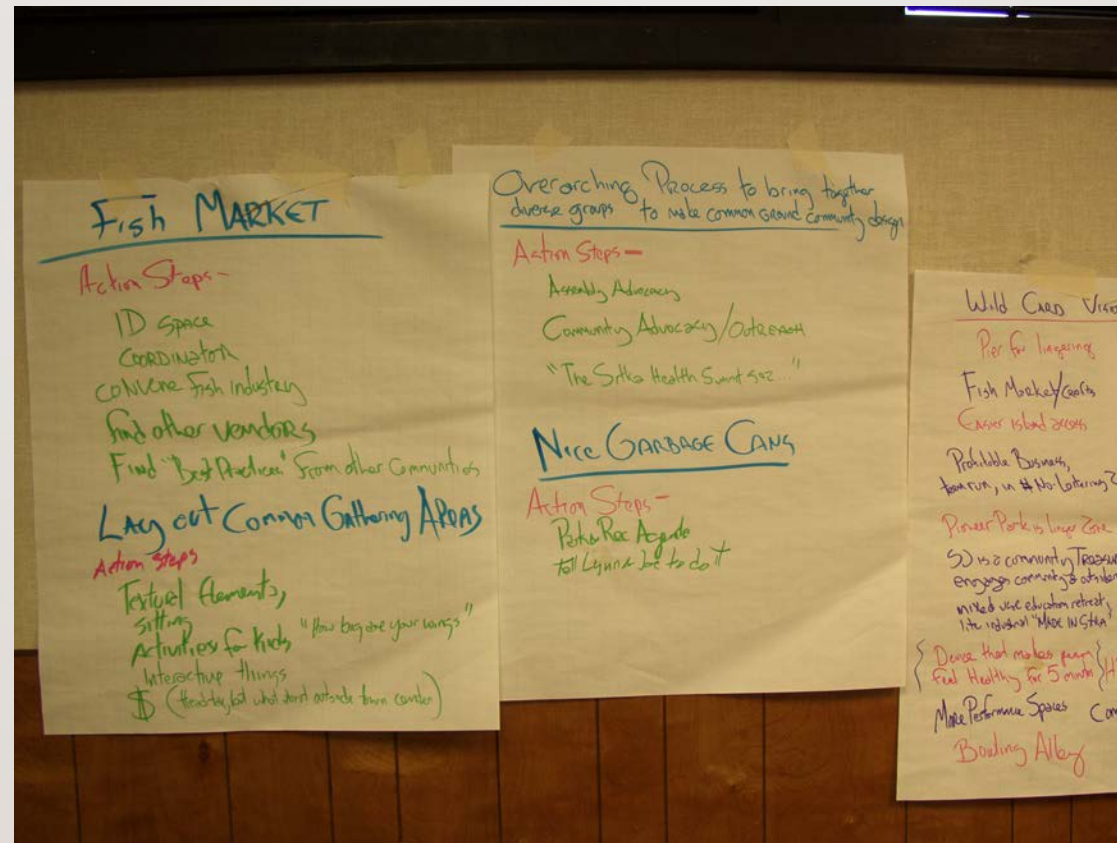 Fish MARKET
Action Steps -
ID SPACE
COORDINATOR
CONVENE fish industry
find other vendors
Find "Best Practices" from other Communities
Lay out Common Gathering AREAS
Action steps
Textural Elements,
sitting
Activities for Kids "How big are your wings"
Interactive things
$ (
Overarching Process to bring together
diverse groups to make common ground community design
Action Steps -
Assembly Advocacy
Community Advocacy/OUTREACH
"The Sitka Health Summit
Nice GARBAGE CANS
Action Steps -
Parks Rec
tell Lynne to do it
Wild CARD
Pier for lingering
Fish Market/crafts
Easier island access
Profitable Business,
in # No-Loitering
Pioneer Park is linger Zone
SJ is a community
engages community &
mixed use education retreat,
lite industrial "MADE IN SITKA"
{ Device that makes }
{ feel Healthy for 5 }
More Performance Spaces
Bowling Alley